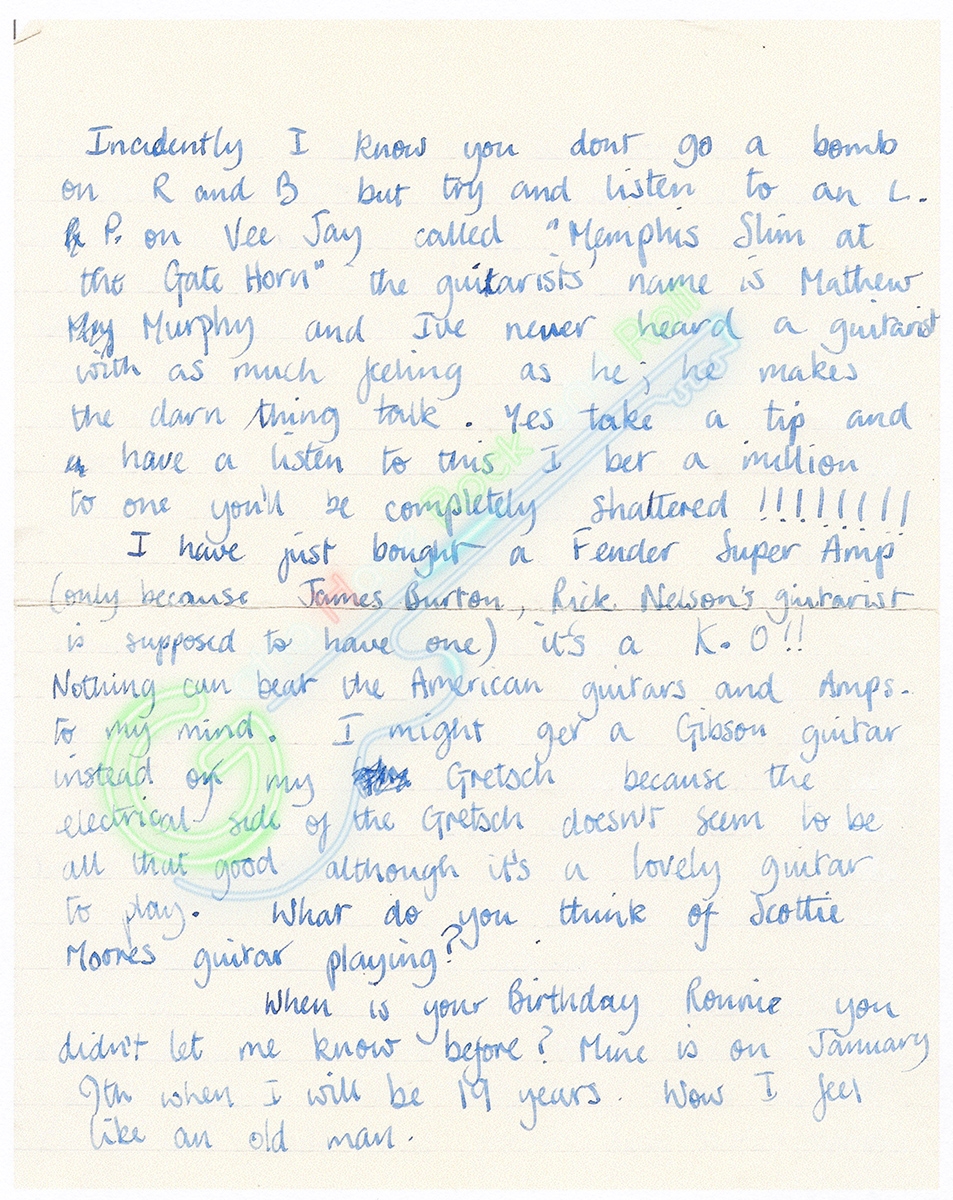 Incidently I know you dont go a bomb
on R and B but try and listen to an L.
P. on Vee Jay called "Memphis Slim at
the Gate Horn" the guitarists' name is Mathew
Murphy and I've never heard a guitarist
with as much feeling as he; he makes
the darn thing talk. Yes take a tip and
have a listen to this I bet a million
to one you'll be completely shattered !!!!!!!!
I have just bought a Fender Super Amp
(only because James Burton, Rick Nelson's guitarist
is supposed to have one) it's a K.O!!
Nothing can beat the American guitars and Amps.
to my mind. I might get a Gibson guitar
instead of my Gretsch because the
electrical side of the Gretsch doesn't seem to be
all that good although it's a lovely guitar
to play. What do you think of Scottie
Moores guitar playing?
When is your Birthday Ronnie you
didn't let me know before? Mine is on January
9th when I will be 19 years. Wow I feel
like an old man.
Rock
Roll